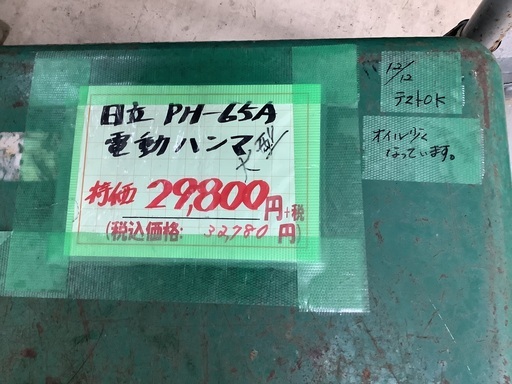 日立 PH-65A
電動ハンマ
大型
特価 29,800円+税
(税込価格: 32,780 円)
12/12
テストOK
オイル少なく
なっています。